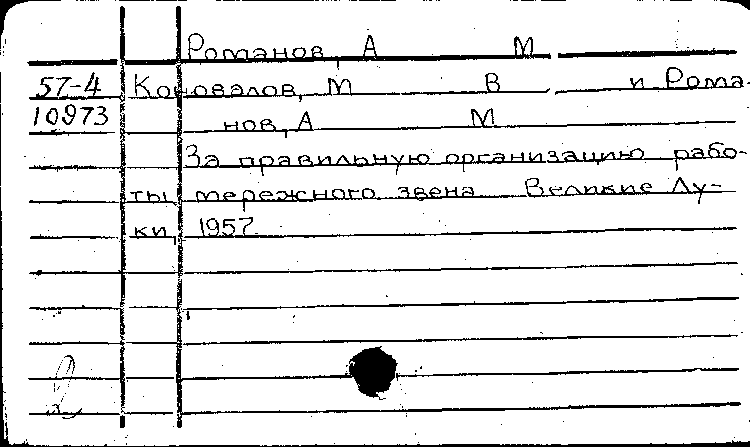 Романов, А М
57-4 Коновалов, М В и Рома-
10973 нов, А М
За правильную организацию рабо-
ты мережного звена Великие Лу-
ки, 1957